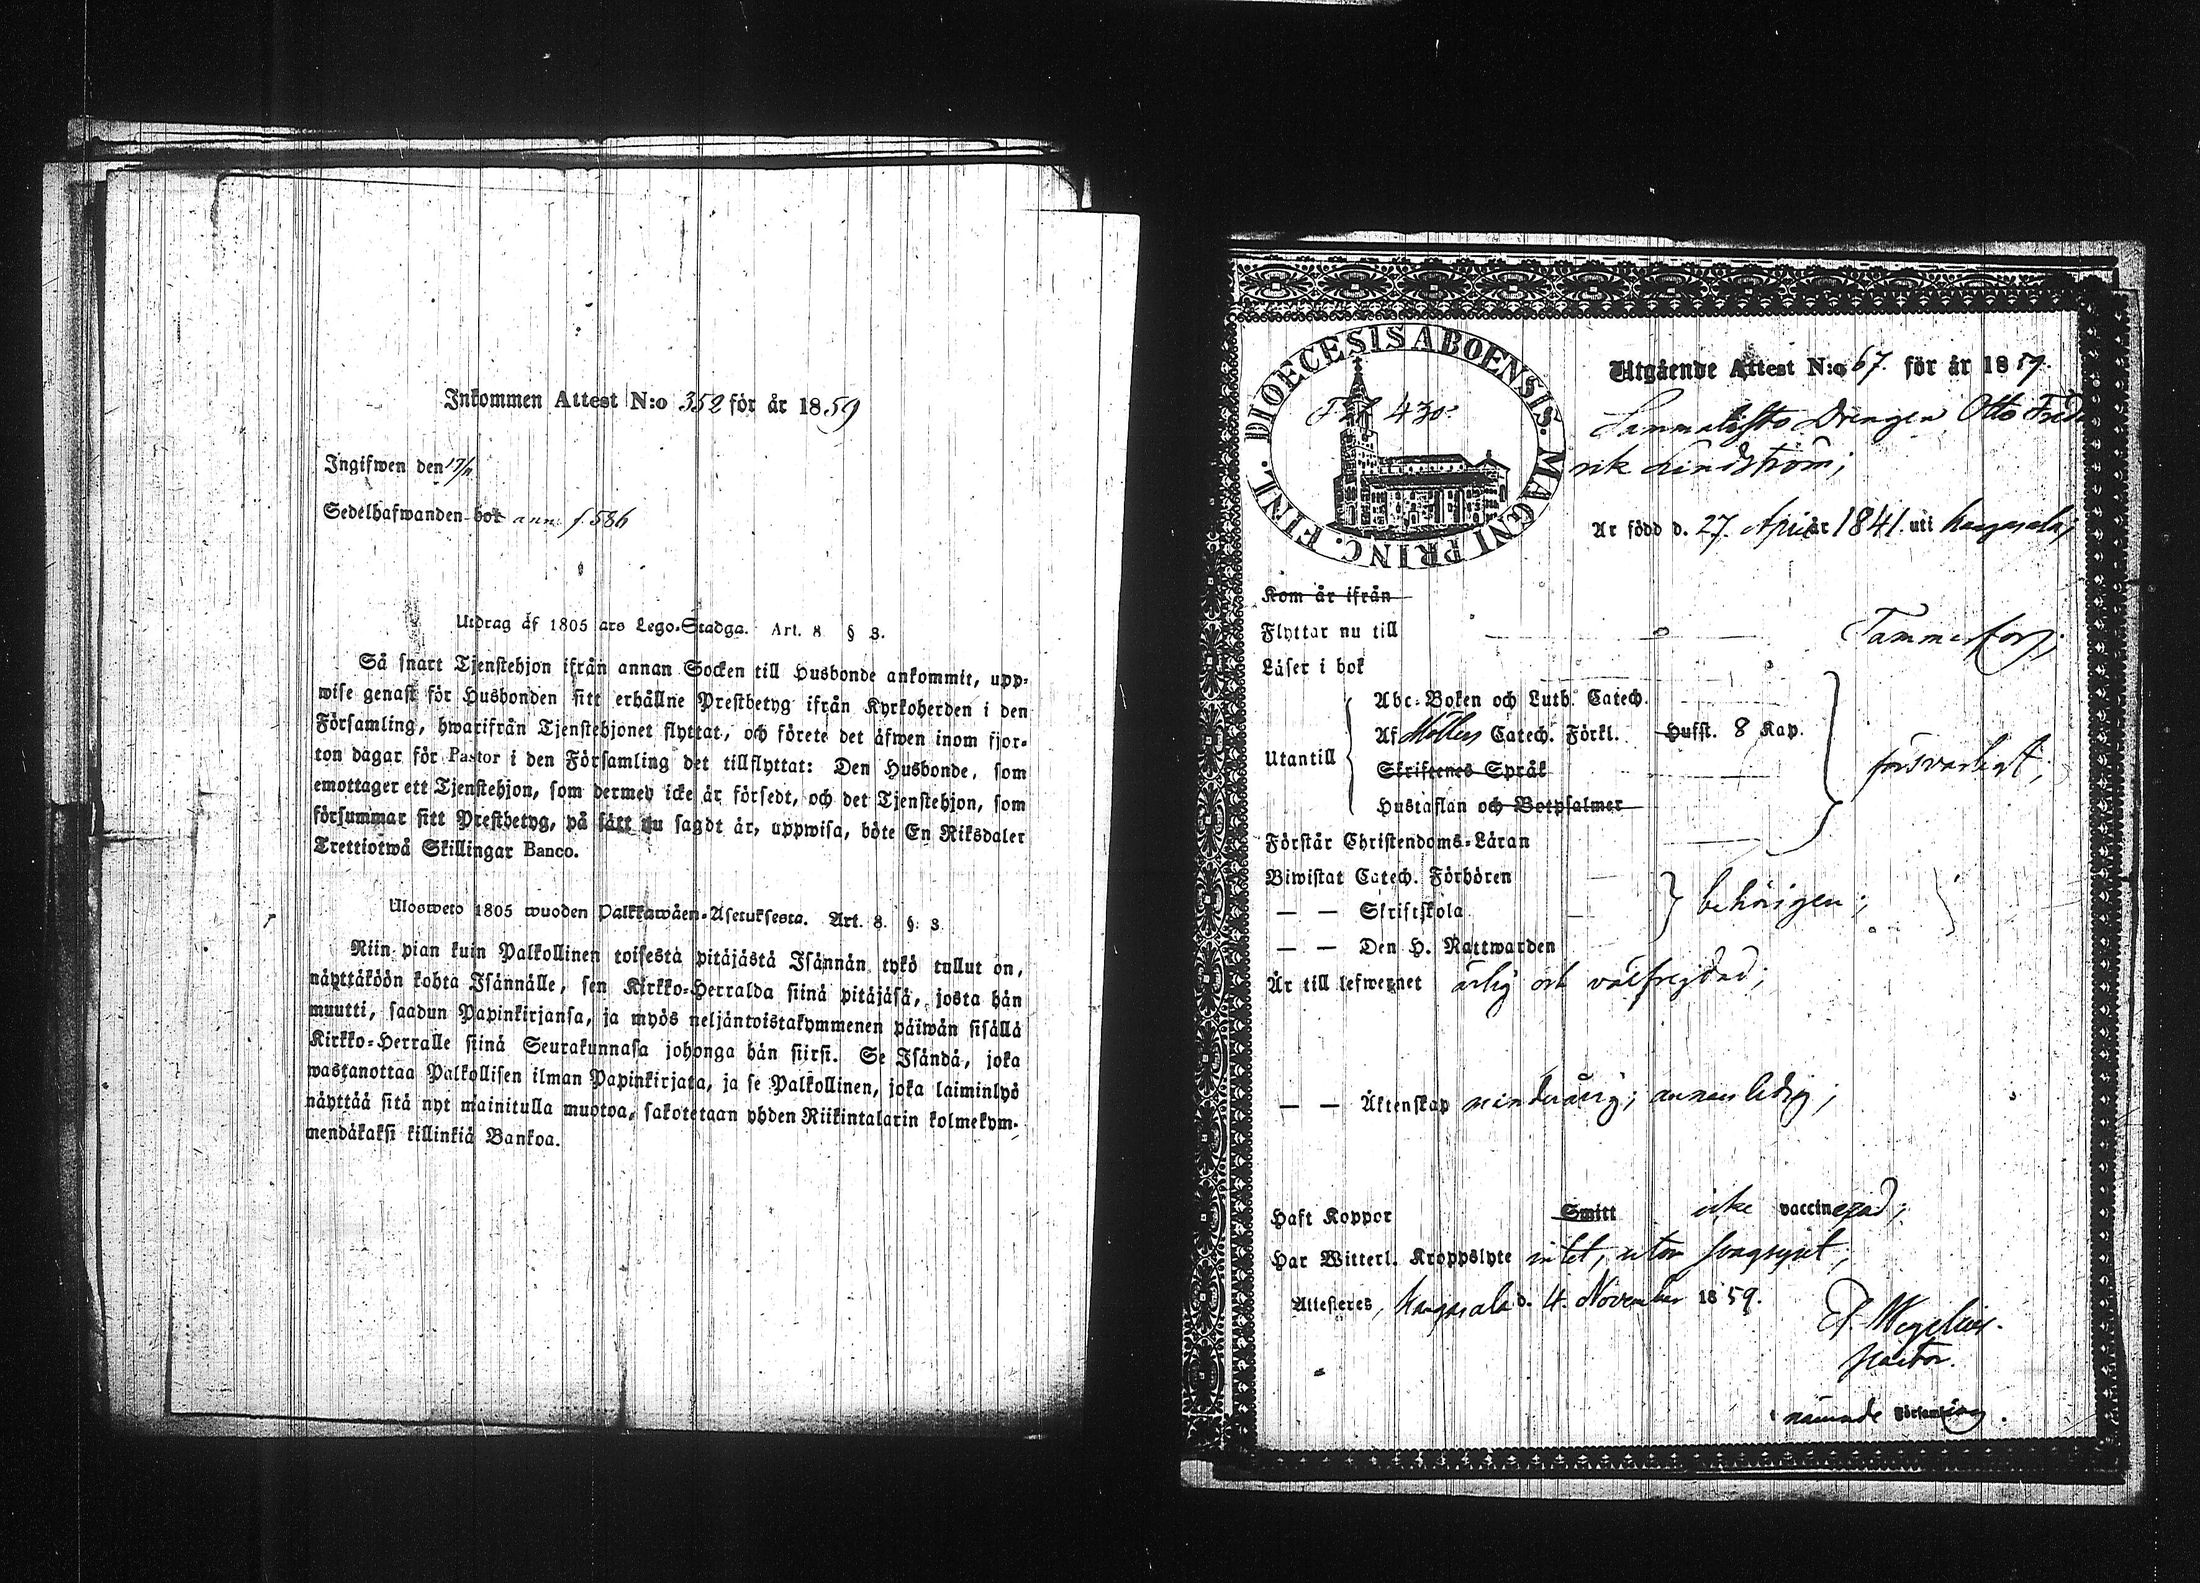 Inkommen Attest N:o 352 för år 1859
Ingifwen den 17/11
Sedelhafwanden bok ann. f. 586
Utdrag af 1805 ars Lego-Stadga. Art. 8 § 3.
Så snart Tjenstehjon ifrån annan Socken till Husbonde ankommit, upp-
wise genast för Husbonden sitt erhållne Prestbetyg ifrån Kyrkoherden i den
Församling, hwarifrån Tjenstehjonet flyttat, och förete det äfwen inom fjor-
ton dagar för Pastor i den Församling det tillflyttat: Den Husbonde, som
emottager ett Tjenstehjon, som dermed icke är försedt, och det Tjenstehjon, som
försummar sitt Prestbetyg, på sätt nu sagdt är, uppwisa, böte En Riksdaler
Trettiotwå Skillingar Banco.
Ulosweto 1805 wuoden Palkkawäen-Asetuksesta. Art. 8. §. 3
Niin pian kuin Palkollinen toisesta pitäjästä Isännän tykö tullut on,
näyttäköön kohta Isännälle, sen Kirkko-Herralda siinä pitäjäsä, josta hän
muutti, saadun Papinkirjansa, ja myös neljäntoistakymmenen päiwän sisällä
Kirkko-Herralle siinä Seurakunnasa johonga hän siirsi. Se Isändä, joka
wastanottaa Palkollisen ilman Papinkirjata, ja se Palkollinen, joka laiminlyö
näyttää sitä nyt mainitulla muotoa, sakotetaan yhden Riikintalarin kolmekym-
mendäkaksi killinkiä Bankoa.
FINL. DIOECESIS ABOENSIS. MAGNI PRINC.
430.
Utgående Attest N:o 67. för år 1859.
Drengen Otto Fred
rik Lindström;
Är född d. 27. April år 1841. uti Kangasala;
Kom år ifrån
Flyttar nu till Tammerfors;
Läser i bok
Abc-Boken och Luth. Catech.
Utantill
Af Möllers Catech. Förkl. Hufst. 8 Kap.
försvarligt;
Skriftenes Språk
Hustaflan och Botpsalmer
Förstår Christendoms-Läran
Biwistat Catech. Förhören
— — Skriftskola behörigen;
— — Den H. Nattwarden
Är till lefwernet ärlig och välfrejdad;
— — Äktenskap minderårig; annars ledig;
Haft Koppor Smitt icke vaccinerad;
Har Witterl. Kroppslyte intet, utom svagsynt;
Attesteres, Kangasala d. 4. November 1859.
Wegelius.
Pastor.
i nämnde Församling.